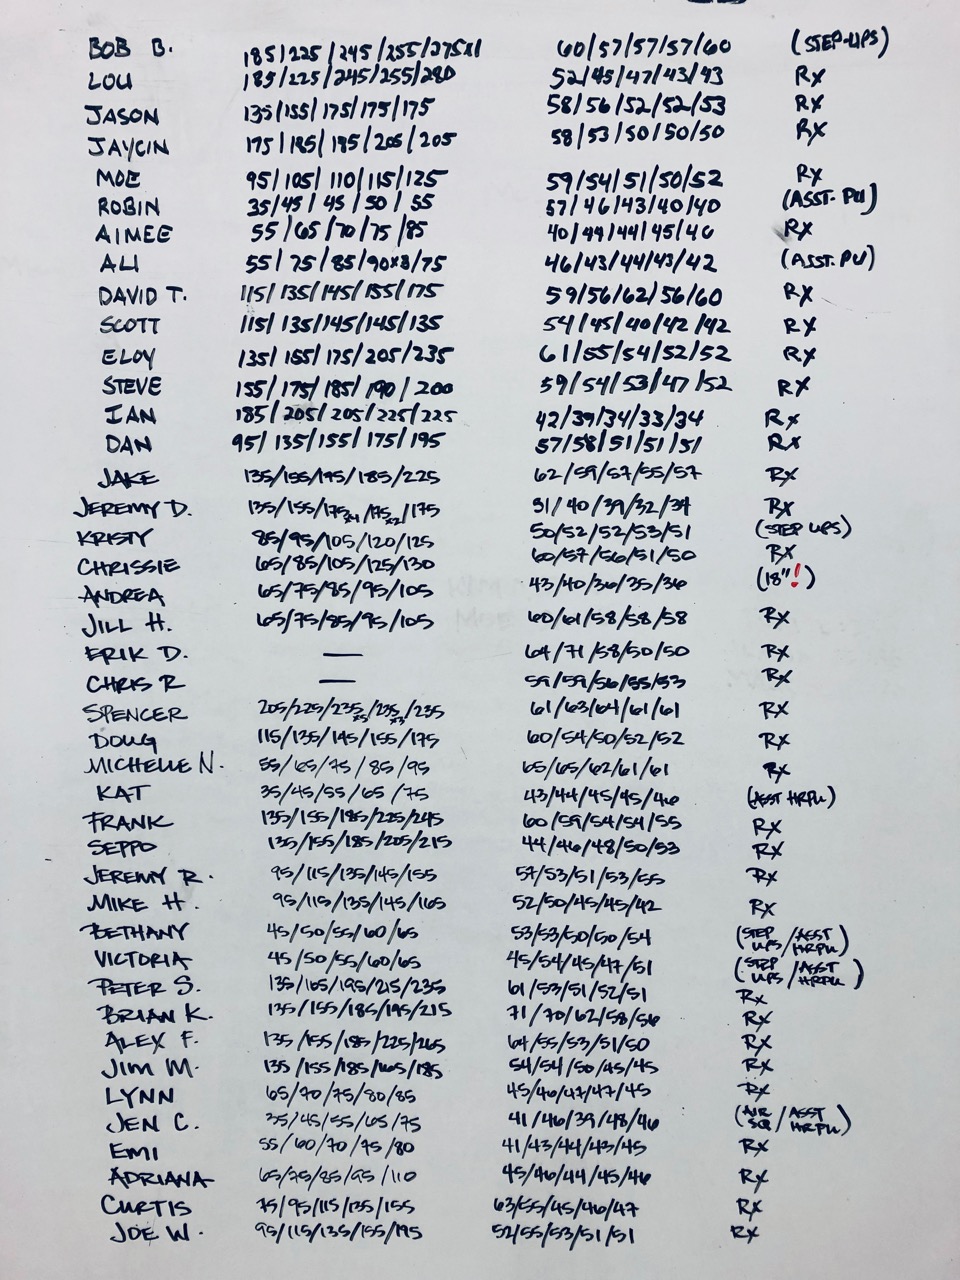 BOB B. 185/225/245/255/275x1 60/57/57/57/60 (STEP-UPS)
LOU 185/225/245/255/280 52/45/47/43/43 RX
JASON 135/155/175/175/175 58/56/52/52/53 RX
JAYCIN 175/185/195/205/205 58/53/50/50/50 RX
MOE 95/105/110/115/125 59/54/51/50/52 RX
ROBIN 35/45/45/50/55 57/46/43/40/40 (ASST. PU)
AIMEE 55/65/70/75/85 40/44/44/45/46 RX
ALI 55/75/85/90x8/75 46/43/44/43/42 (ASST. PU)
DAVID T. 115/135/145/155/175 59/56/62/56/60 RX
SCOTT 115/135/145/145/135 54/45/40/42/42 RX
ELOY 135/155/175/205/235 61/55/54/52/52 RX
STEVE 155/175/185/190/200 59/54/53/47/52 RX
IAN 185/205/205/225/225 42/39/34/33/34 RX
DAN 95/135/155/175/195 57/58/51/51/51 RX
JAKE 135/155/175/185/225 62/59/57/55/57 RX
JEREMY D. 135/155/175x4/175x2/175 31/40/39/32/34 RX
KRISTY 85/95/105/120/125 50/52/52/53/51 (STEP UPS)
CHRISSIE 65/85/105/125/130 60/57/56/51/50 RX
ANDREA 65/75/85/95/105 43/40/36/35/36 (18"!)
JILL H. 65/75/85/95/105 60/61/58/58/58 RX
ERIK D. — 64/71/58/50/50 RX
CHRIS R — 59/59/56/55/53 RX
SPENCER 205/225/235x5/235x3/235 61/63/64/61/61 RX
DOUG 115/135/145/155/175 60/54/50/52/52 RX
MICHELLE N. 55/65/75/85/95 65/65/62/61/61 RX
KAT 35/45/55/65/75 43/44/45/45/46 (ASST HRPU)
FRANK 135/155/185/225/245 60/59/54/54/55 RX
SEPPO 135/155/185/205/215 44/46/48/50/53 RX
JEREMY R. 95/115/135/145/155 57/53/51/53/55 RX
MIKE H. 95/115/135/145/165 52/50/45/45/42 RX
BETHANY 45/50/55/60/65 53/53/50/50/54 (STEP UPS/ASST HRPU)
VICTORIA 45/50/55/60/65 45/54/45/47/51 (STEP UPS/ASST HRPU)
PETER S. 135/165/195/215/235 61/53/51/52/51 RX
BRIAN K. 135/155/185/195/215 71/70/62/58/56 RX
ALEX F. 135/155/185/225/265 64/55/53/51/50 RX
JIM M. 135/155/185/165/185 54/54/50/45/45 RX
LYNN 65/70/75/80/85 45/46/47/47/45 RX
JEN C. 35/45/55/65/75 41/46/39/48/46 (AIR SQ/ASST HRPU)
EMI 55/60/70/75/80 41/43/44/43/45 RX
ADRIANA 65/75/85/95/110 45/46/44/45/46 RX
CURTIS 75/95/115/135/155 63/55/45/46/47 RX
JOE W. 95/115/135/155/195 52/55/53/51/51 RX